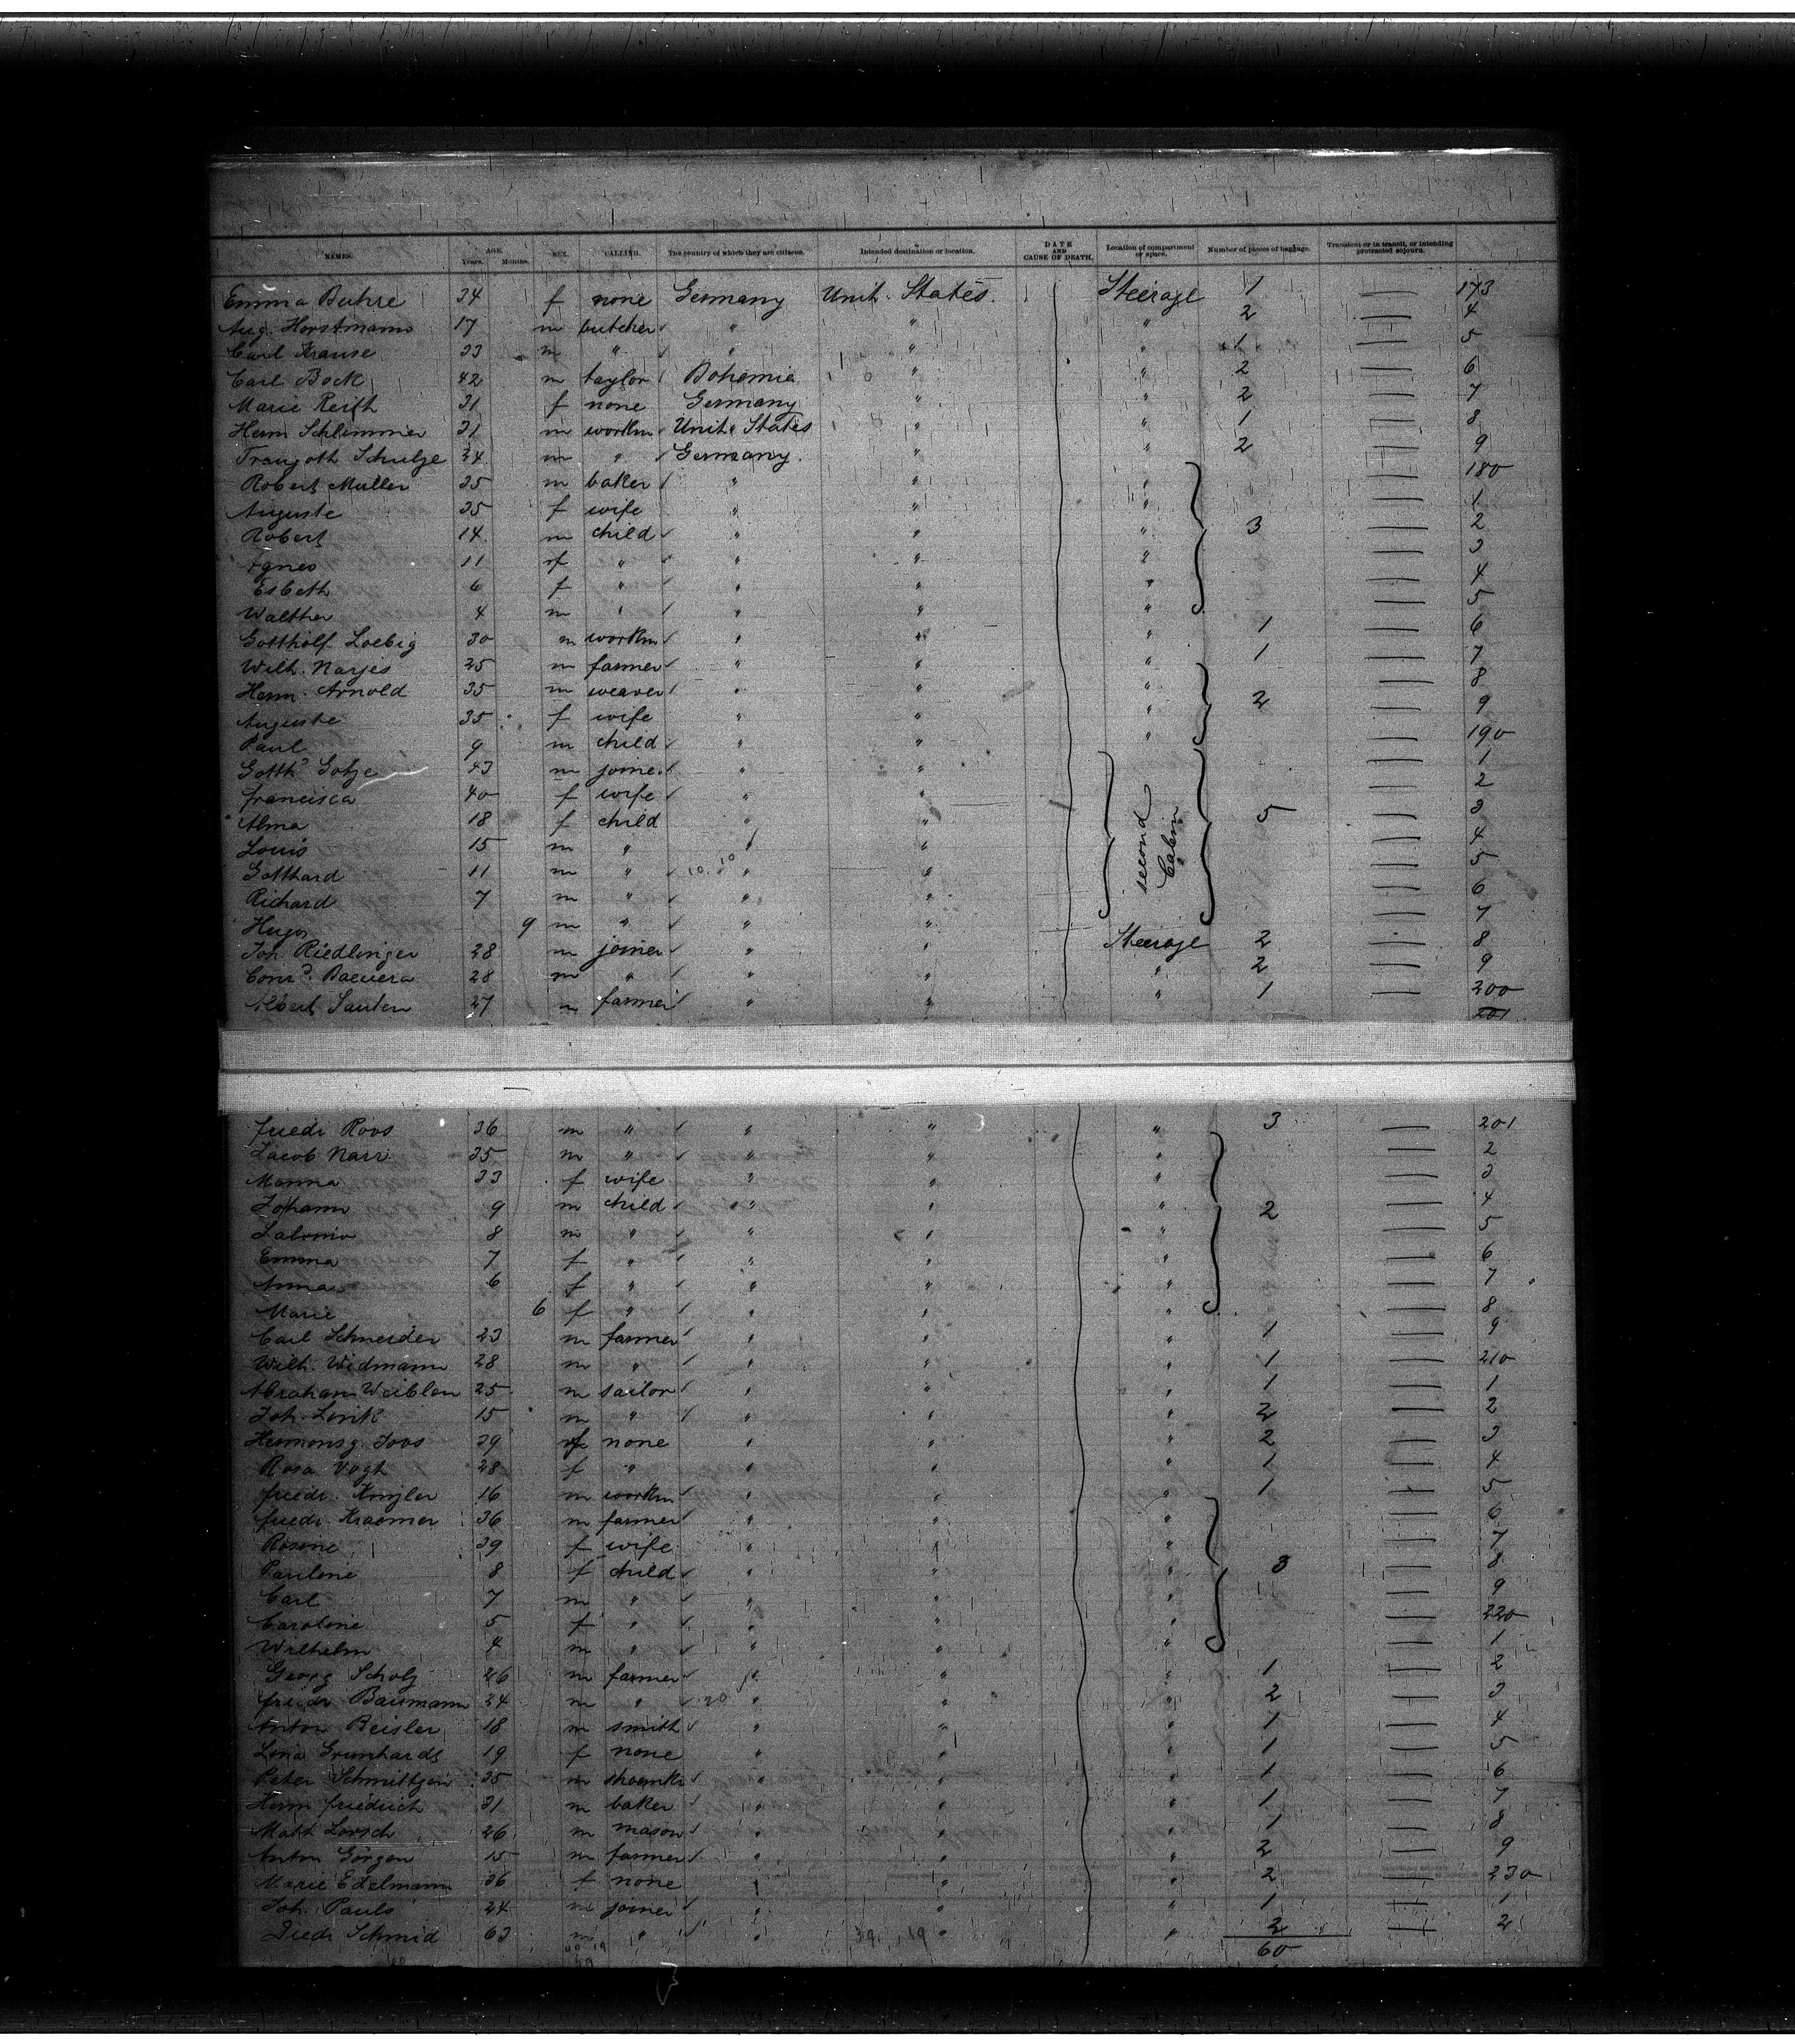 NAMES. AGE. Years. Months. SEX. CALLING. The country of which they are citizens. Intended destination or location. DATE AND CAUSE OF DEATH. Location of compartment or space. Number of pieces of baggage. Transient or in transit, or intending protracted sojourn.
Emma Buhre 34 f none Germany Unit. States. Steerage 1 — 173
Aug. Horstmann 17 m butcher " " " 2 — 4
Carl Krause 23 m " " " " 1 — 5
Carl Bock 42 m taylor Bohemia " " 2 — 6
Marie Reith 31 f none Germany " " 2 — 7
Herm Schlimmer 31 m workm Unit. States " " 1 — 8
Traugoth Schulze 24 m " Germany. " " 2 — 9
Robert Muller 35 m baker " " " — 180
Auguste 35 f wife " " " — 1
Robert 14 m child " " " 3 — 2
Agnes 11 f " " " " — 3
Esbeth 6 f " " " " — 4
Walther 4 m " " " " — 5
Gotthólf Loebig 30 m workm " " " 1 — 6
Wilh. Narjes 25 m farmer " " " 1 — 7
Herm. Arnold 35 m weaver " " " — 8
Auguste 35 f wife " " " 2 — 9
Paul 9 m child " " " — 190
Gotth Gotze 43 m joiner " " — 1
Francisca 40 f wife " " — 2
Alma 18 f child " " second Cabin 5 — 3
Louis 15 m " " " — 4
Gotthard 11 m " " " — 5
Richard 7 m " " " — 6
Hugo 9 m " " " — 7
Joh. Riedlinger 28 m joiner " " Steerage 2 — 8
Conrd. Baeuera 28 m " " " " 2 — 9
Albert Sauter 27 m farmer " " " 1 — 200
201
Friedr Roos 36 m " " " " 3 — 201
Jacob Narr 35 m " " " " — 2
Manna 33 f wife " " " — 3
Johann 9 m child " " " 2 — 4
Salomo 8 m " " " " — 5
Emma 7 f " " " " — 6
Anna 6 f " " " " — 7
Marie 6 f " " " " — 8
Carl Schneider 23 m farmer " " " 1 — 9
Wilh. Widmann 28 m " " " " 1 — 210
Abraham Weiblen 25 m sailor " " " 1 — 1
Joh. Link 15 m " " " " 2 — 2
Joos 39 f none " " " 2 — 3
Rosa Vogt 28 f " " " " 1 — 4
Friedr. 16 m workm " " " 1 — 5
Friedr. Kraemer 36 m farmer " " " — 6
Rosine 39 f wife " " " — 7
Pauline 8 f child " " " 3 — 8
Carl 7 m " " " " — 9
Caroline 5 f " " " " — 220
Wilhelm 4 m " " " " — 1
Georg Scholz 26 m farmer " " " 1 — 2
Friedr Baumann 24 m " " " " 2 — 3
Anton Beisler 18 m smith " " " 1 — 4
Lina Grunhards 19 f none " " " 1 — 5
Peter Schmittgen 35 m shoemkr " " " 1 — 6
Herm Friedrich 31 m baker " " " 1 — 7
Matt Lorsch 26 m mason " " " 1 — 8
Anton Görgen 15 m farmer " " " 2 — 9
Marie Edelmann 36 f none " " " 2 — 230
Joh. Pauls 24 m joiner " " " 1 — 1
Diedr Schmid 63 m " " " " 2 — 2
60